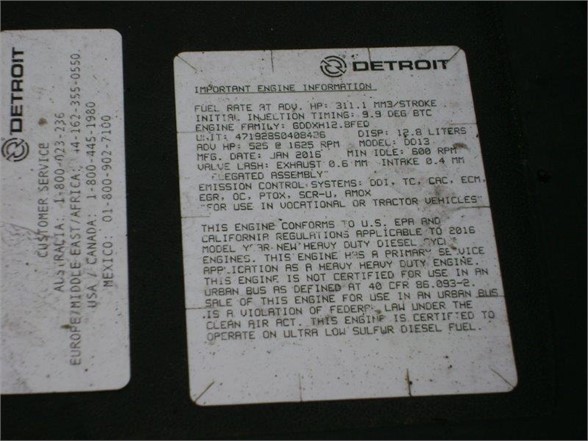 DETROIT
CUSTOMER SERVICE
AUSTRALIA: 1-800-023-236
EUROPE/MIDDLE EAST/AFRICA: 44-162-355-0550
USA / CANADA: 1-800-445-1980
MEXICO: 01-800-902-7100
DETROIT
IMPORTANT ENGINE INFORMATION
FUEL RATE AT ADV. HP: 311.1 MM3/STROKE
INITIAL INJECTION TIMING: 9.9 DEG BTC
ENGINE FAMILY: GDDXH12.8FED
UNIT: 471928S0408426 DISP: 12.8 LITERS
ADV HP: 525 @ 1625 RPM MODEL: DD13
MFG. DATE: JAN 2016 MIN IDLE: 600 RPM
VALVE LASH: EXHAUST 0.6 MM INTAKE 0.4 MM
"LEGATED ASSEMBLY"
EMISSION CONTROL SYSTEMS: DDI, TC, CAC, ECM,
EGR, OC, PTOX, SCR-U, AMOX
"FOR USE IN VOCATIONAL OR TRACTOR VEHICLES"
THIS ENGINE CONFORMS TO U.S. EPA AND
CALIFORNIA REGULATIONS APPLICABLE TO 2016
MODEL YEAR NEW HEAVY DUTY DIESEL CYCL
ENGINES. THIS ENGINE HAS A PRIMARY SERVICE
APPLICATION AS A HEAVY HEAVY DUTY ENGINE.
THIS ENGINE IS NOT CERTIFIED FOR USE IN AN
URBAN BUS AS DEFINED AT 40 CFR 86.093-2.
SALE OF THIS ENGINE FOR USE IN AN URBAN BUS
IS A VIOLATION OF FEDERAL LAW UNDER THE
CLEAN AIR ACT. THIS ENGINE IS CERTIFIED TO
OPERATE ON ULTRA LOW SULFUR DIESEL FUEL.